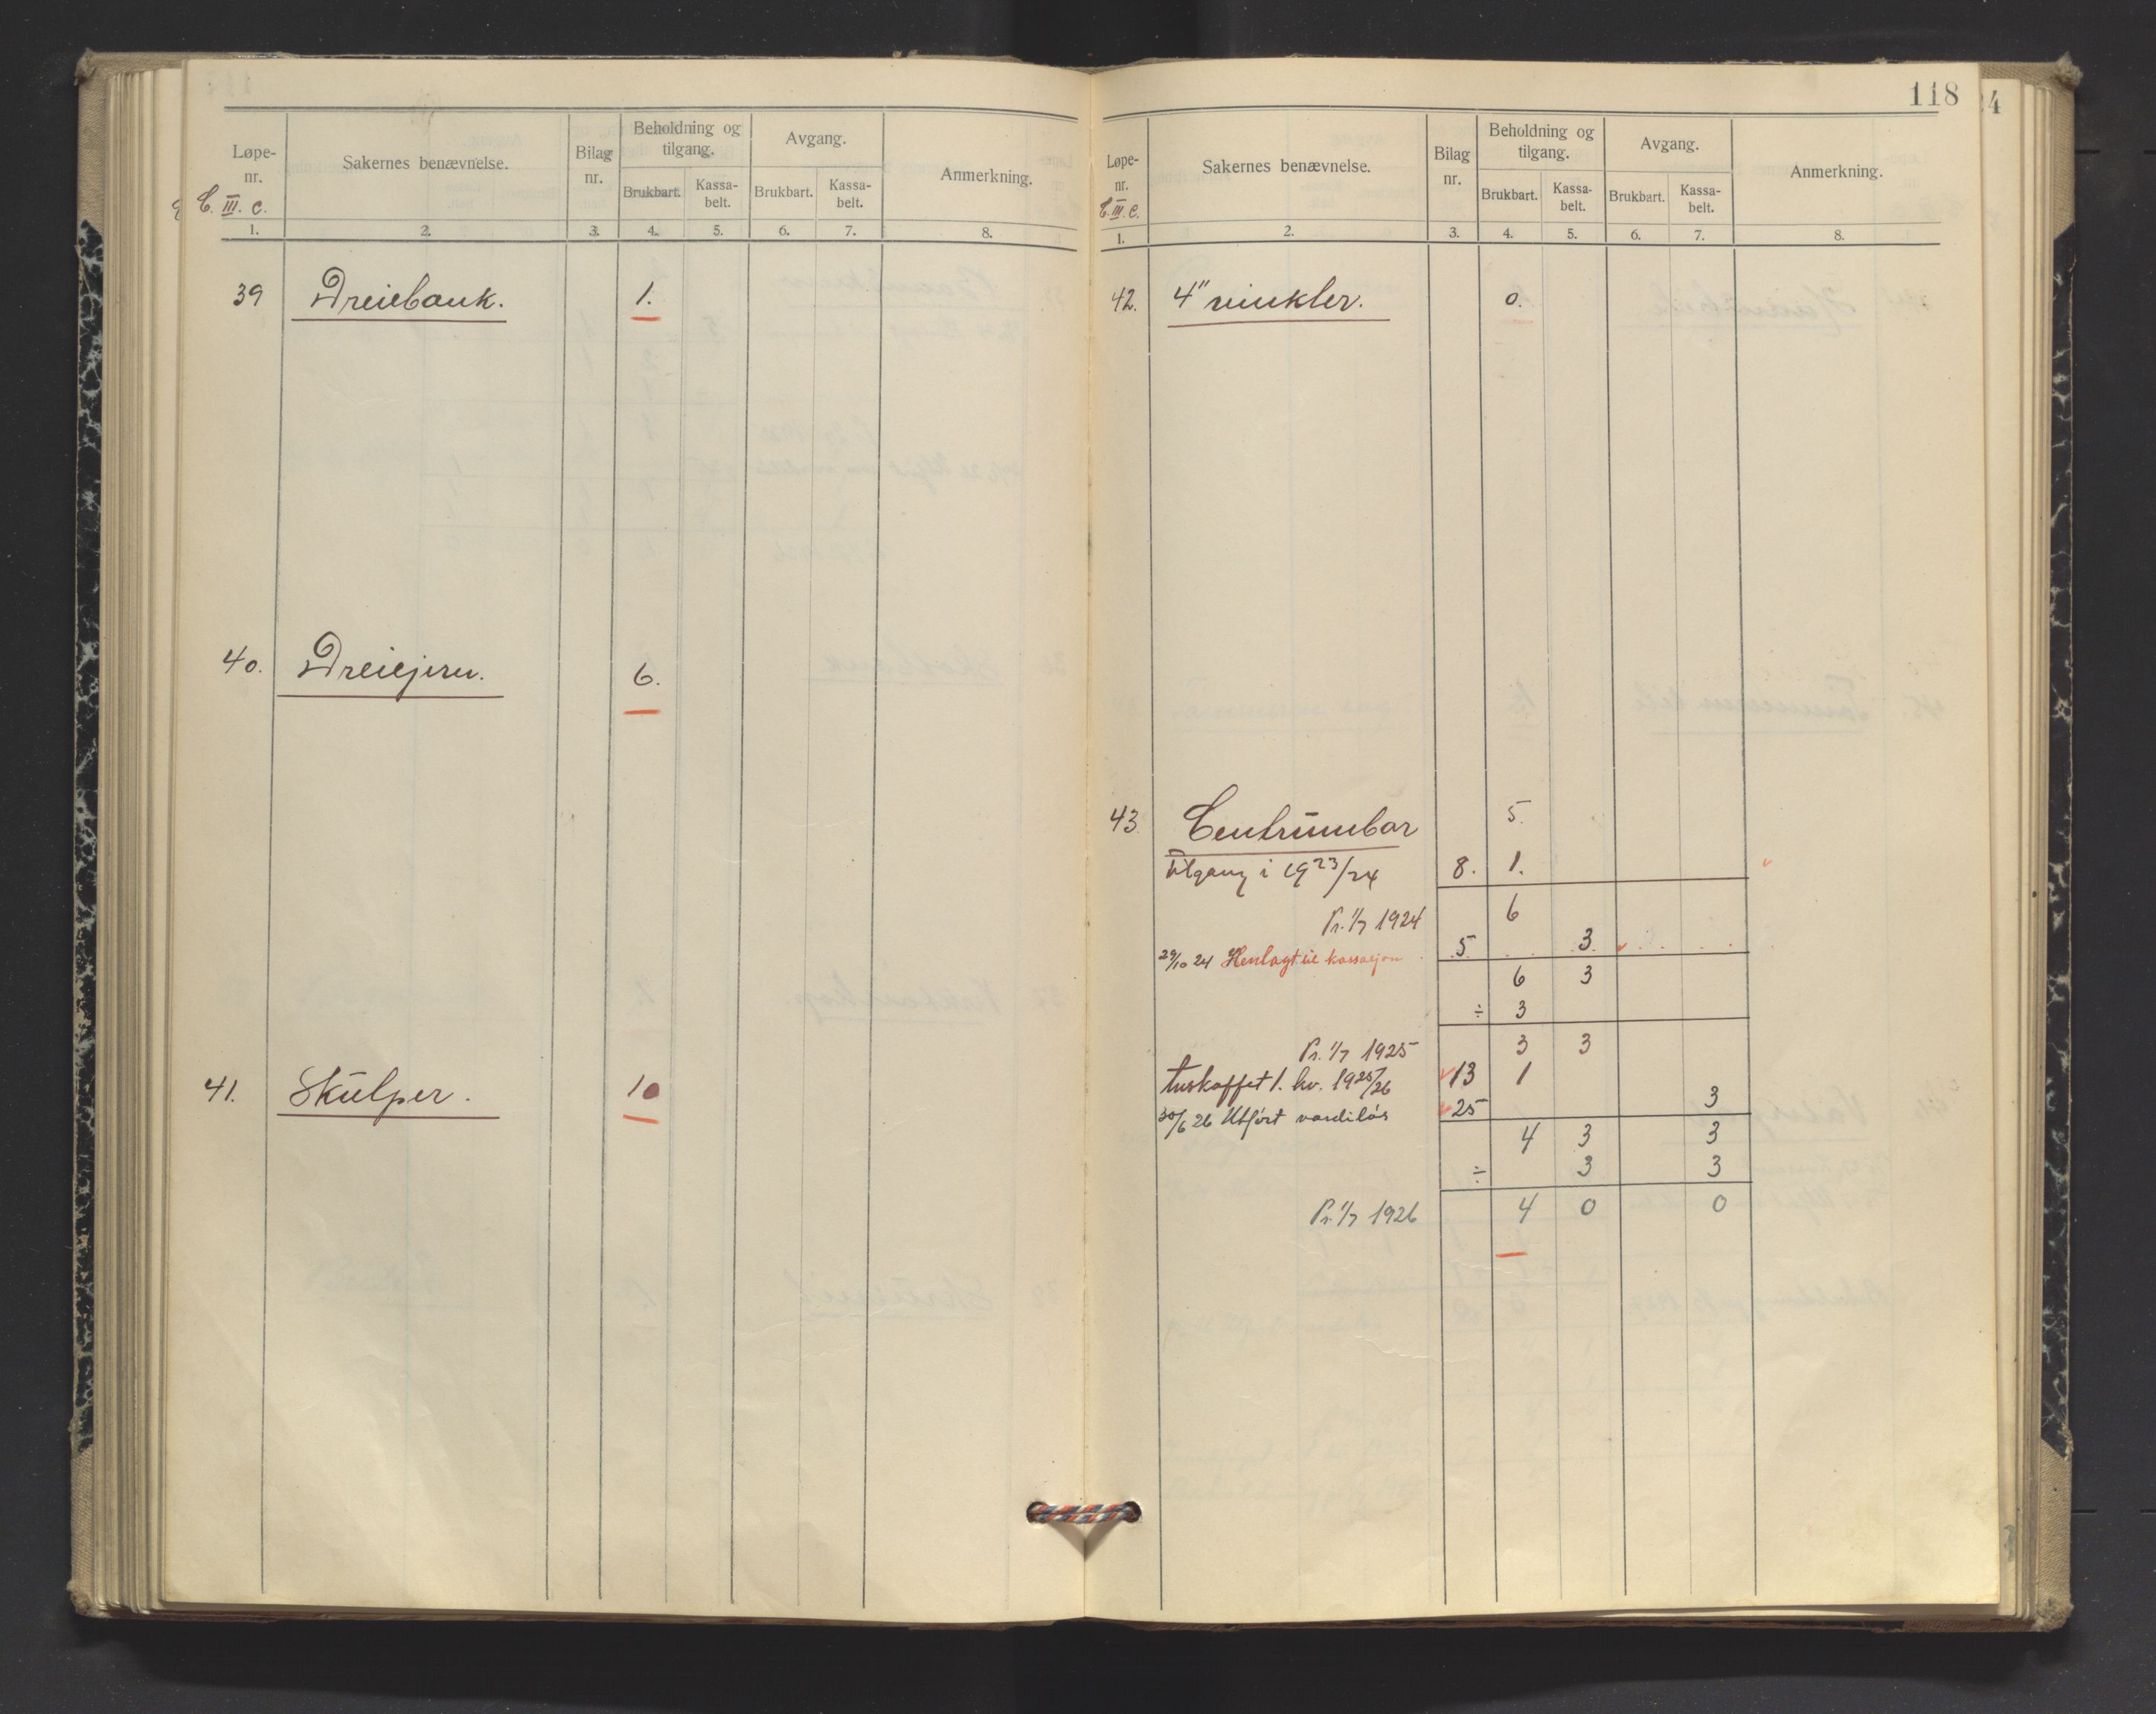 Løpe-
nr.
C. III. c.
Sakernes benævnelse.
Bilag
nr.
Beholdning og
tilgang.
Avgang.
Anmerkning.
Brukbart.
Kassa-
belt.
Brukbart.
Kassa-
belt.
1. 2. 3. 4. 5. 6. 7. 8.
39 Dreiebank. 1.
40. Dreiejern. 6.
41. Skülper. 10
118
Løpe-
nr.
C. III. c.
Sakernes benævnelse.
Bilag
nr.
Beholdning og
tilgang.
Avgang.
Anmerkning.
Brukbart.
Kassa-
belt.
Brukbart.
Kassa-
belt.
1. 2. 3. 4. 5. 6. 7. 8.
42. 4" vinkler. 0.
43. Centrümbor 5.
Tilgang i 1923/24 8. 1.
Pr. 1/7 1924 6
29/10 24 Henlagt til kassasjon 5 3
6 3
÷ 3
Pr. 1/7 1925 3 3
Inskaffet 1. kv. 1925/26 13 1
30/6 26 Utført verdiløs 25 3
4 3 3
÷ 3 3
Pr. 1/7 1926 4 0 0